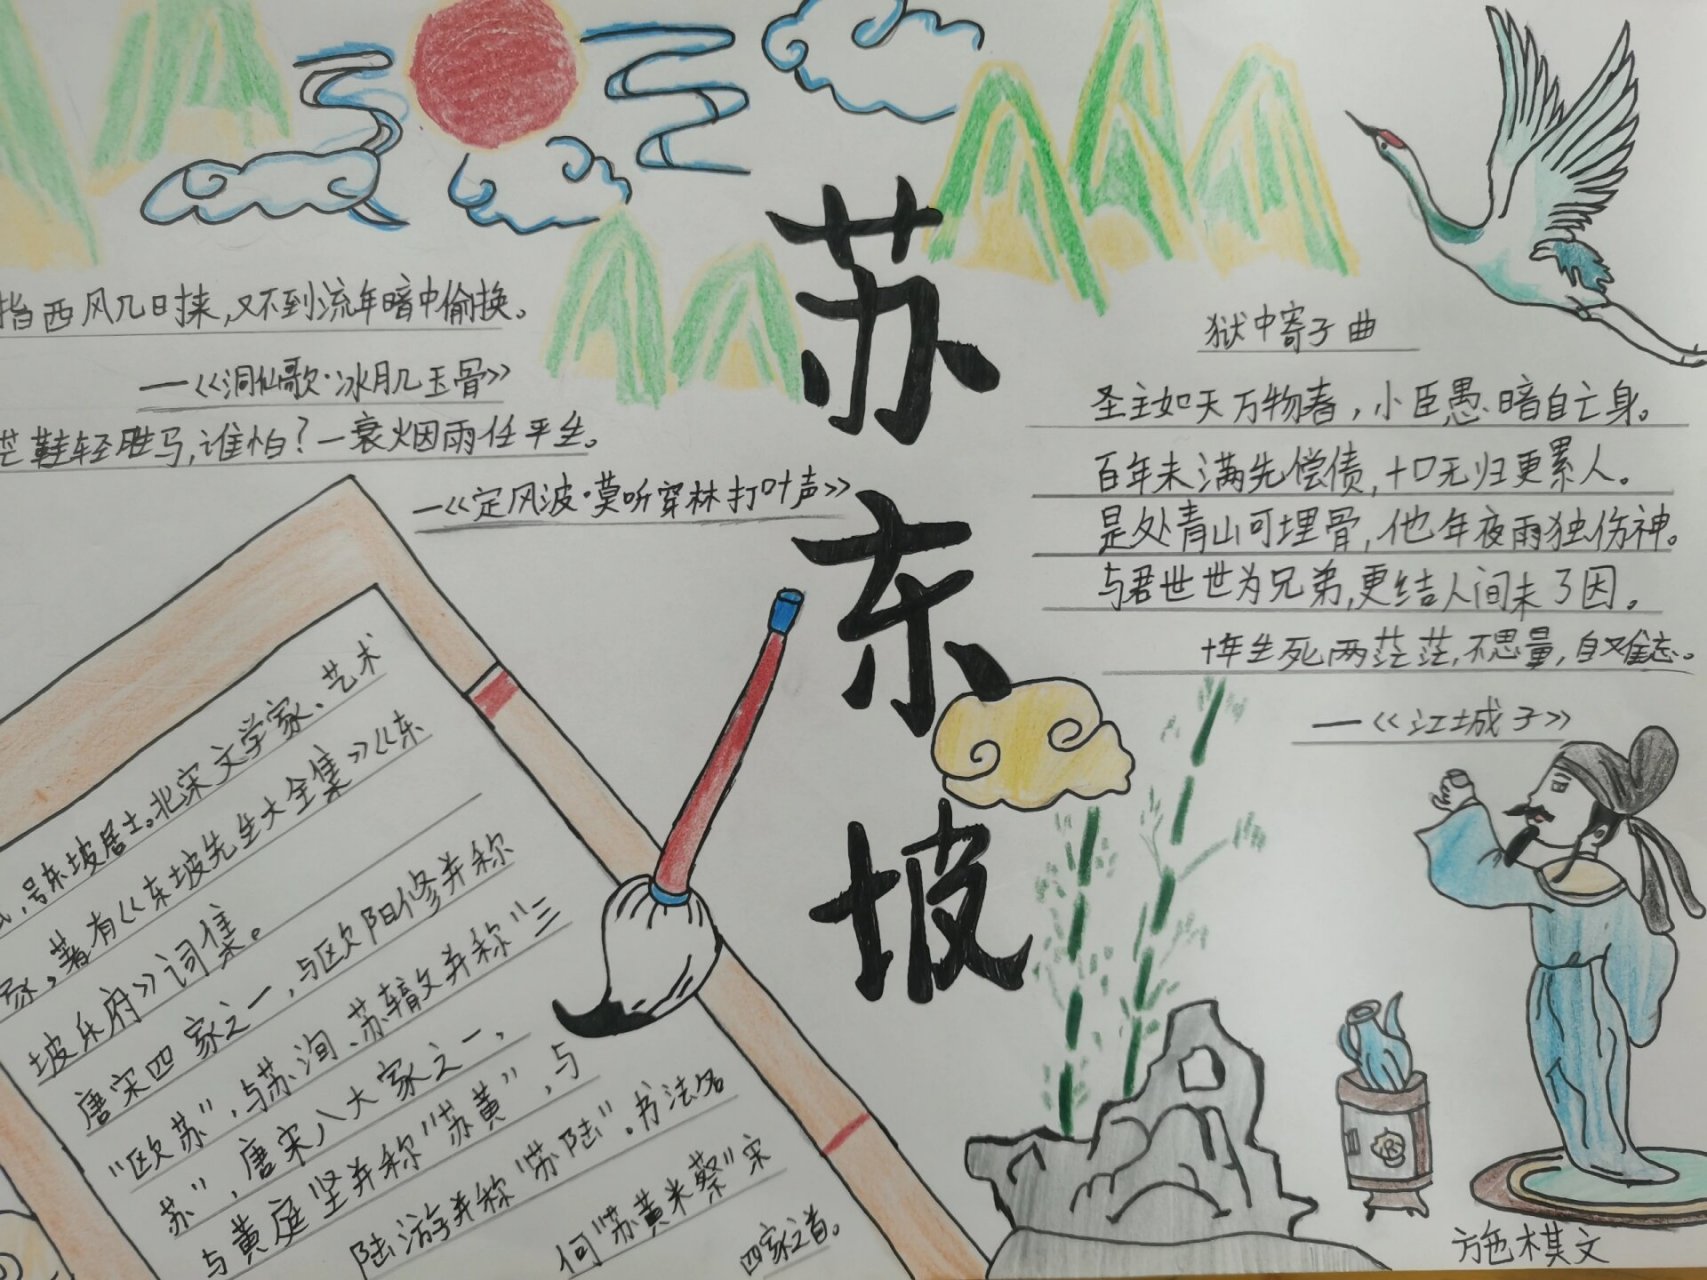 指西风几日来,又不到流年暗中偷换。
—《洞仙歌·冰肌玉骨》
芒鞋轻胜马,谁怕?一衰烟雨任平生。
—《定风波·莫听穿林打叶声》
苏东坡
狱中寄子曲
圣主如天万物春,小臣愚暗自亡身。
百年未满先偿债,十口无归更累人。
是处青山可埋骨,他年夜雨独伤神。
与君世世为兄弟,更结人间未了因。
十年生死两茫茫,不思量,自难忘。
—《江城子》
,号东坡居士。北宋文学家、艺术
家。著有《东坡先生大全集》《东
坡乐府》词集。
唐宋四家之一,与欧阳修并称
"欧苏",与苏洵、苏辙父并称"三
苏",唐宋八大家之一,
与黄庭坚并称"苏黄",与
陆游并称"苏陆"。书法名
何"苏黄米蔡"宋
四家之首。
方逸棋文